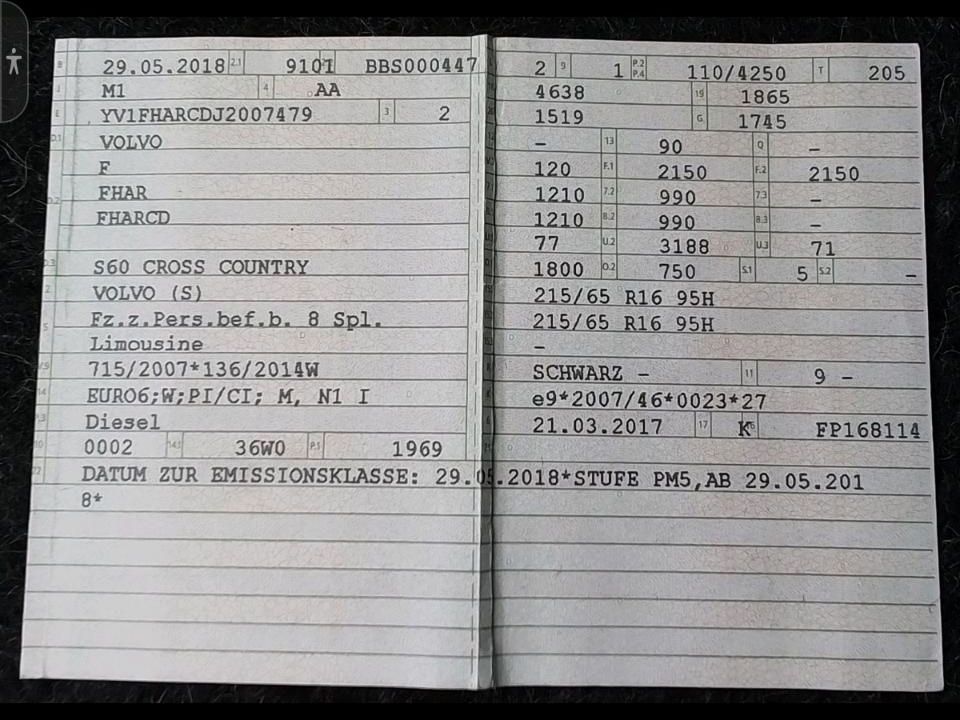 B 29.05.2018 2.1 9101 BBS000447
J M1 4 AA
E YV1FHARCDJ2007479 3 2
D.1 VOLVO
F
D.2 FHAR
FHARCD
D.3 S60 CROSS COUNTRY
2 VOLVO (S)
5 Fz.z.Pers.bef.b. 8 Spl.
Limousine
V.9 715/2007*136/2014W
14 EURO6;W;PI/CI; M, N1 I
P.3 Diesel
10 0002 14.1 36W0 P.1 1969
22 DATUM ZUR EMISSIONSKLASSE: 29.05.2018*STUFE PM5,AB 29.05.201
8*
2 9 1 P.2 P.4 110/4250 T 205
4638 19 1865
1519 G 1745
– 13 90 Q –
120 F.1 2150 F.2 2150
1210 7.2 990 7.3 –
1210 8.2 990 8.3 –
77 U.2 3188 U.3 71
1800 O.2 750 S.1 5 S.2 –
215/65 R16 95H
215/65 R16 95H
–
SCHWARZ – 11 9 –
e9*2007/46*0023*27
21.03.2017 17 K FP168114